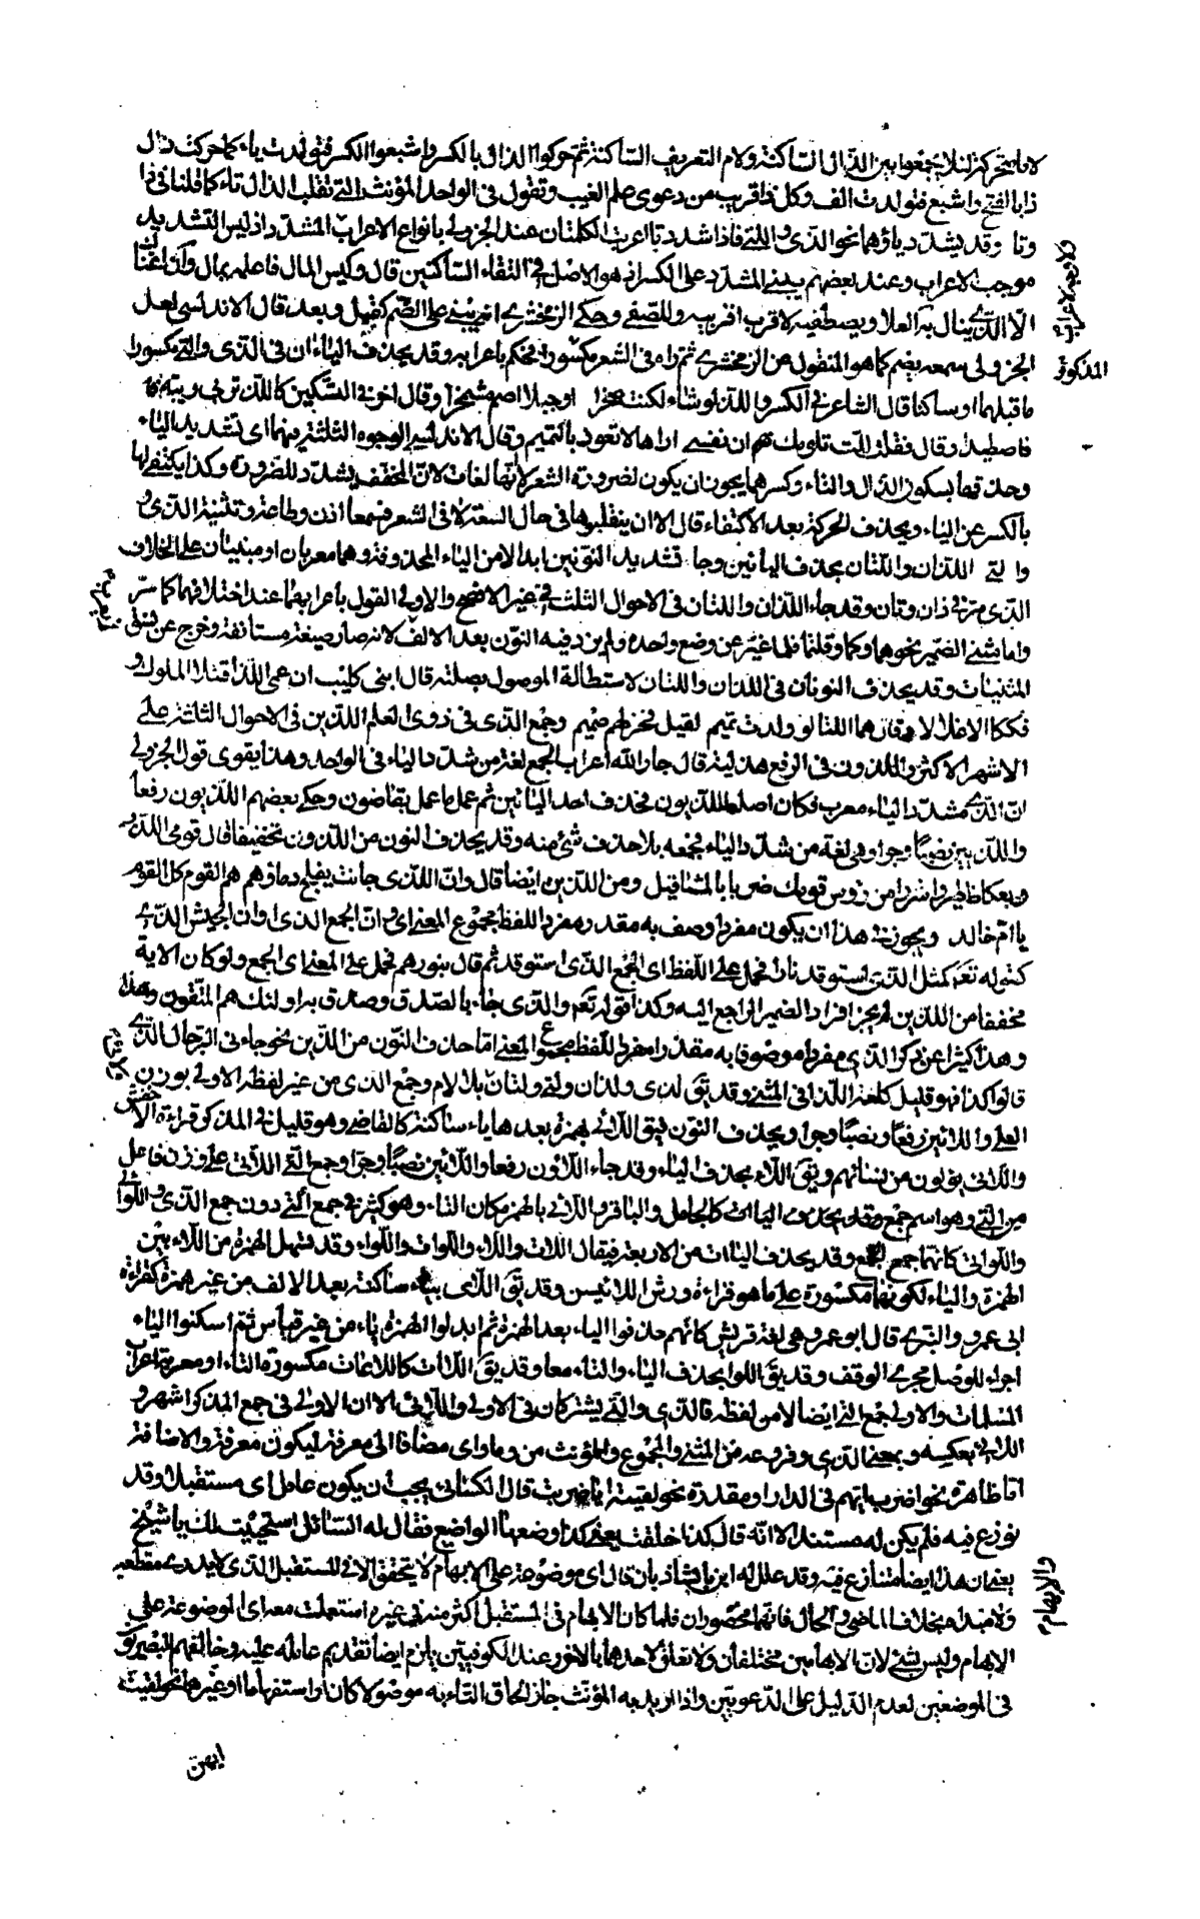 لاما متحركة لئلا يجمعوا بين الذال الساكنة ولام التعريف الساكنة ثم حركوا الذال بالكسر واشبعوا الكسر فتولدت ياء كما حركت ذال
ذا بالفتح واشبع فتولدت الف وكل ذا قريب من دعوى علم الغيب وتقول فى الواحد المؤنث التى تقلب الذال تاء كما قلنا فى ذا
وتا وقد يشدد ياؤهما نحو الذى واللتى فاذا شددتا اعربت الكلمتان عند الجزولى بانواع الاعراب المشدد اذ ليس التشديد
موجب لاعراب وعند بعضهم يبنى المشدد على الكسر اذ هو الاصل فى التقاء الساكنين قال وليس المال فاعلمه بمال وان اغناك
الا الذى ينال به العلا ويصطفيه لاقرب اقربيه وللصفى وحكى الزمخشرى انه يبنى على الضم كقبل وبعد قال الاندلسى لعل
الجزولى سمعه بضم كما هو المنقول عن الزمخشرى ثم راه فى الشعر مكسورا فحكم باعرابه وقد يحذف الياءان فى الذى والتى مكسورا
ما قبلهما او ساكنا قال الشاعر فى الكسر واللذ لو شاء لكنت صخرا او جبلا اصم مشمخرا وقال اخر فى التسكين كاللذ تزبى زبية
فاصطيدا وقال فقلت للت تلومك ان نفسى اراها لا تعوذ بالتميم وقال الاندلسى الوجوه الثلثة فيهما اى تشديد الياء
وحذفها بسكون الذال والتاء وكسرهما يجوز ان يكون لضرورة الشعر لا انها لغات لان المخفف يشدد للضرورة وكذا يكتفى لها
بالكسر عن الياء ويحذف الحركة بعد الاكتفاء قال الا ان ينقلبوها فى حال السعة لا فى الشعر فسمعا اذن وطاعة وتثنية الذى و
والتى اللذان واللتان بحذف اليائين وجاء تشديد النونين ابدالا من الياء المحذوفة وهما معربان او مبنيان على الخلاف
الذى مر فى ذان وتان وقد جاء اللذان واللتان فى الاحوال الثلث فى غير الافصح والاولى القول باعرابهما عند اختلافهما كما مر
واما تثنى الضمير نحو هما وكما وقلتما فلما غير عن وضع واحده ولم يزد فيه النون بعد الالف لانه صار صيغة مستانفة وخرج عن نسق
المثنيات وقد يحذف النونان فى اللذان واللتان لاستطالة الموصول بصلته قال ابنى كليب ان عمى اللذا قتلا الملوك و
فككا الاغلالا وقال هما اللتا لو ولدت تميم لقيل فخر لهم صميم وجمع الذى فى ذوى العلم الذين فى الاحوال الثلثة على
الاشهر الاكثر والذون فى الرفع هذلية قال جار الله اعراب الجمع لغة من شدد الياء فى الواحد وهذا يقوى قول الجزولى
ان الذى مشدد الياء معرب فكان اصله اللذيون فحذف احد اليائين ثم عمل ما عمل بقاضون وحكى بعضهم اللذيون رفعا
واللذيين نصبا وجرا وهى لغة من شدد الياء فجمعه بلا حذف شئ منه وقد يحذف النون من الذون تخفيفا قال قومى الذو
بعكاظ طيروا شررا من روس قومك ضربا بالمثاقيل ومن الذين ايضا قال وان الذى حانت بفلج دماؤهم هم القوم كل القوم
يا ام خالد ويجوز فى هذا ان يكون مفردا وصف به مقدر مفرد اللفظ مجموع المعنى اى وان الجمع الذى او ان الجيش الذى
كقوله تعم كمثل الذى استوقد نارا فحمل على اللفظ اى الجمع الذى استوقد ثم قال بنورهم فحمل على المعنى اى الجمع ولو كان الاية
مخففا من الذين لم يجز افراد الضمير الراجع اليه وكذا قوله تعم والذى جاء بالصدق وصدق به اولئك هم المتقون وهذا
وهذا كثير اعنى ذكر الذى مفردا موصوفا به مقدر مفرد اللفظ مجموع المعنى اما حذف النون من الذين نحو جاءنى الرجال الذى
قالوا كذا فهو قليل كقلة اللذا فى المثنى وقد يق لذى ولذان ولتى ولتان بلا لام وجمع الذى من غير لفظه الاولى بوزن
العلى واللائين رفعا ونصبا وجرا ويحذف النون فيق اللائى بهمزة بعدها ياء ساكنة كالقاضى وهو قليل فى المذكر قراءة الاخفش
واللائى يؤلون من نسائهم ويق اللاء بحذف الياء وقد جاء اللاؤن رفعا واللائين نصبا وجرا وجمع التى اللاتى على وزن فاعل
من التى وهو اسم جمع وقد يحذف الياء اللات كالجامل والباقر واللائى بالهمز مكان التاء وهو كثير فى جمع التى دون جمع الذى واللواتى
واللوائى كانهما جمع الجمع وقد يحذف الياءات من الاربعة فيقال اللات واللاء واللوات واللواء وقد تسهل الهمزة من اللاء بين
الهمزة والياء لكونها مكسورة على ما هو قراءة ورش اللائى يئسن وقد يق اللاى بياء ساكنة بعد الالف من غير همزة كقراءة
ابى عمرو والبزى قال ابو عمرو هى لغة قريش كانهم حذفوا الياء بعد الهمزة ثم ابدلوا الهمزة ياء من غير قياس ثم اسكنوا الياء
اجراء للوصل مجرى الوقف وقد يق اللوا بحذف الياء والتاء معا وقد يق اللاات كاللاعات مكسورة التاء او معربة اعراب
المسلمات والاولى جمع التى ايضا لا من لفظه فالذى والتى يشتركان فى الاولى واللائى الا ان الاولى فى جمع المذكر اشهر و
اللائى بعكسه وبمعنى الذى وفروعه من المثنى والمجموع والمؤنث من وما واى مضافا الى معرفة ليكون معرفة والاضافة
اما ظاهرة نحو اضرب ايهم فى الدار او مقدرة نحو لقيته ايا ضربت قال الكسائى يجب ان يكون عامل اى مستقبلا وقد
نوزع فيه فلم يكن له مستند الا انه قال كذا خلقت يعنى كذا وضعها الواضع فقال له السائل استحييت لك يا شيخ
يعنى ان هذا ايضا متنازع فيه وقد علل له ابن بابشاذ بان قال اى موضوعة على الابهام والابهام لا يتحقق الا فى المستقبل الذى لا يدرى مقطعه
ولا مبداه بخلاف الماضى والحال فانهما محصوران فلما كان الابهام فى المستقبل اكثر منه فى غيره استعملت معه اى الموضوعة على
الابهام وليس بشئ لان الابهامين مختلفان ولا تعلق لاحدهما بالاخر وعند الكوفيين يلزم ايضا تقديم عامله عليه وخالفهم البصريون
فى الموضعين لعدم الدليل على الدعويين واذا اريد به المؤنث جاز الحاق التاء به موصولا كان او استفهاما او غيرهما نحو لقيت
ايهن